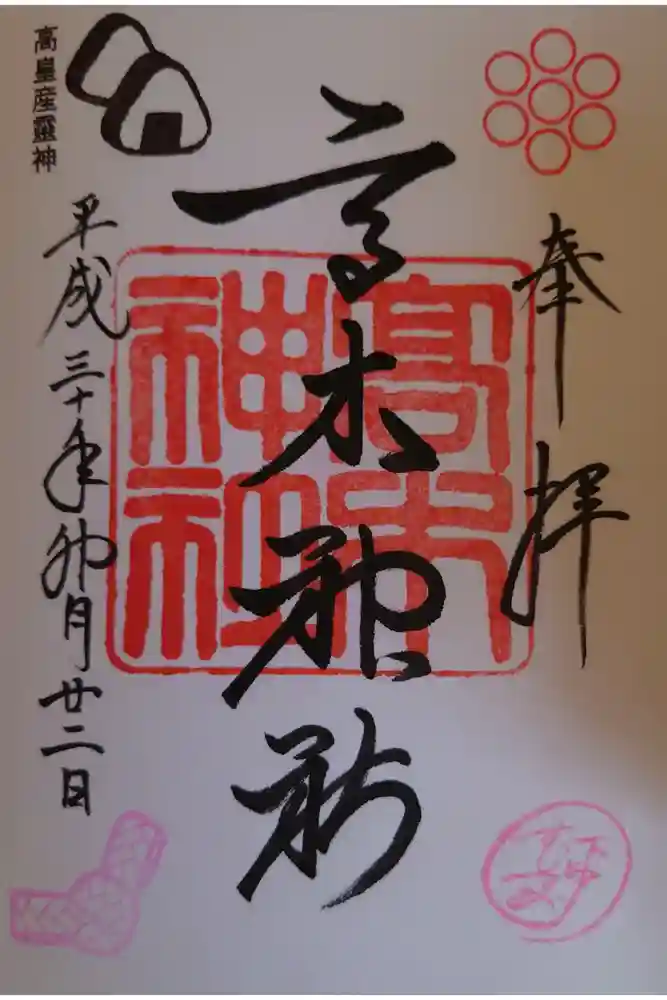 奉拝
高木神社
高木神社
平成三十年卯月廿二日
高皇産靈神